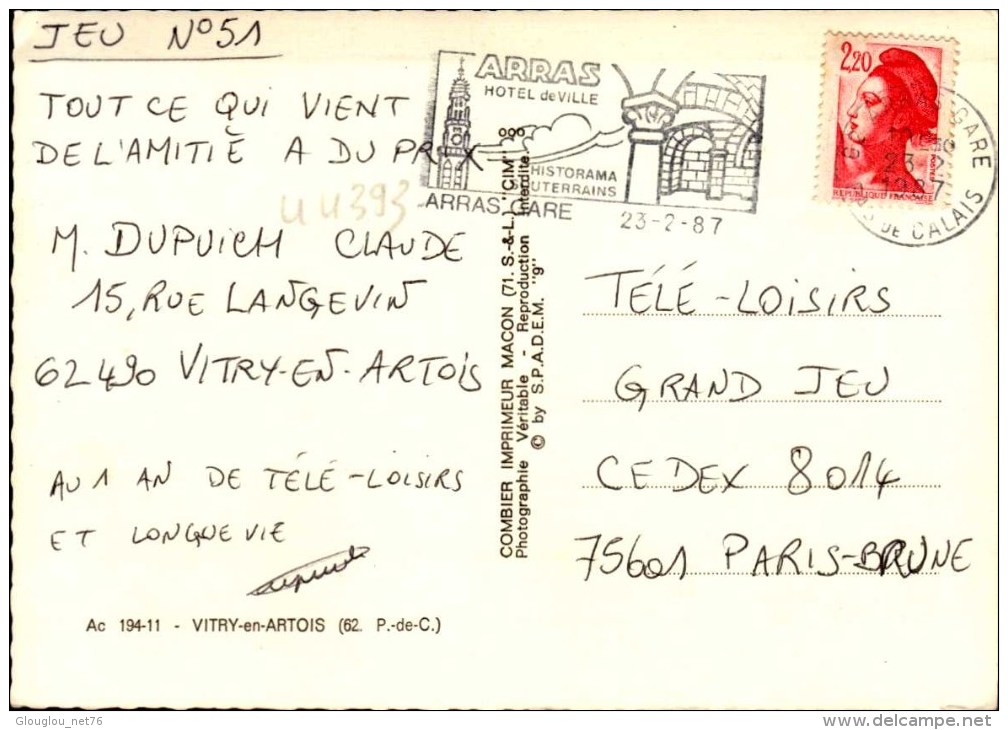 JEU N°51
TOUT CE QUI VIENT
DE L'AMITIÉ A DU PRIX
UU393
M. DUPUICH CLAUDE
15, RUE LANGEVIN
62490 VITRY-EN-ARTOIS
AU 1 AN DE TÉLÉ-LOISIRS
ET LONGUE VIE
Ac 194-11 - VITRY-en-ARTOIS (62. P.-de-C.)
COMBIER IMPRIMEUR MACON (71. S.-&-L.) "CIM"
Photographie Véritable - Reproduction Interdite
© by S.P.A.D.E.M. "g"
ARRAS
HOTEL de VILLE
HISTORAMA
ARRAS GARE
23-2-87
2,20
REPUBLIQUE FRANÇAISE
GARE
23-2
1987
DE CALAIS
TÉLÉ-LOISIRS
GRAND JEU
CEDEX 8014
75601 PARIS-BRUNE
Glouglou_net76
www.delcampe.net